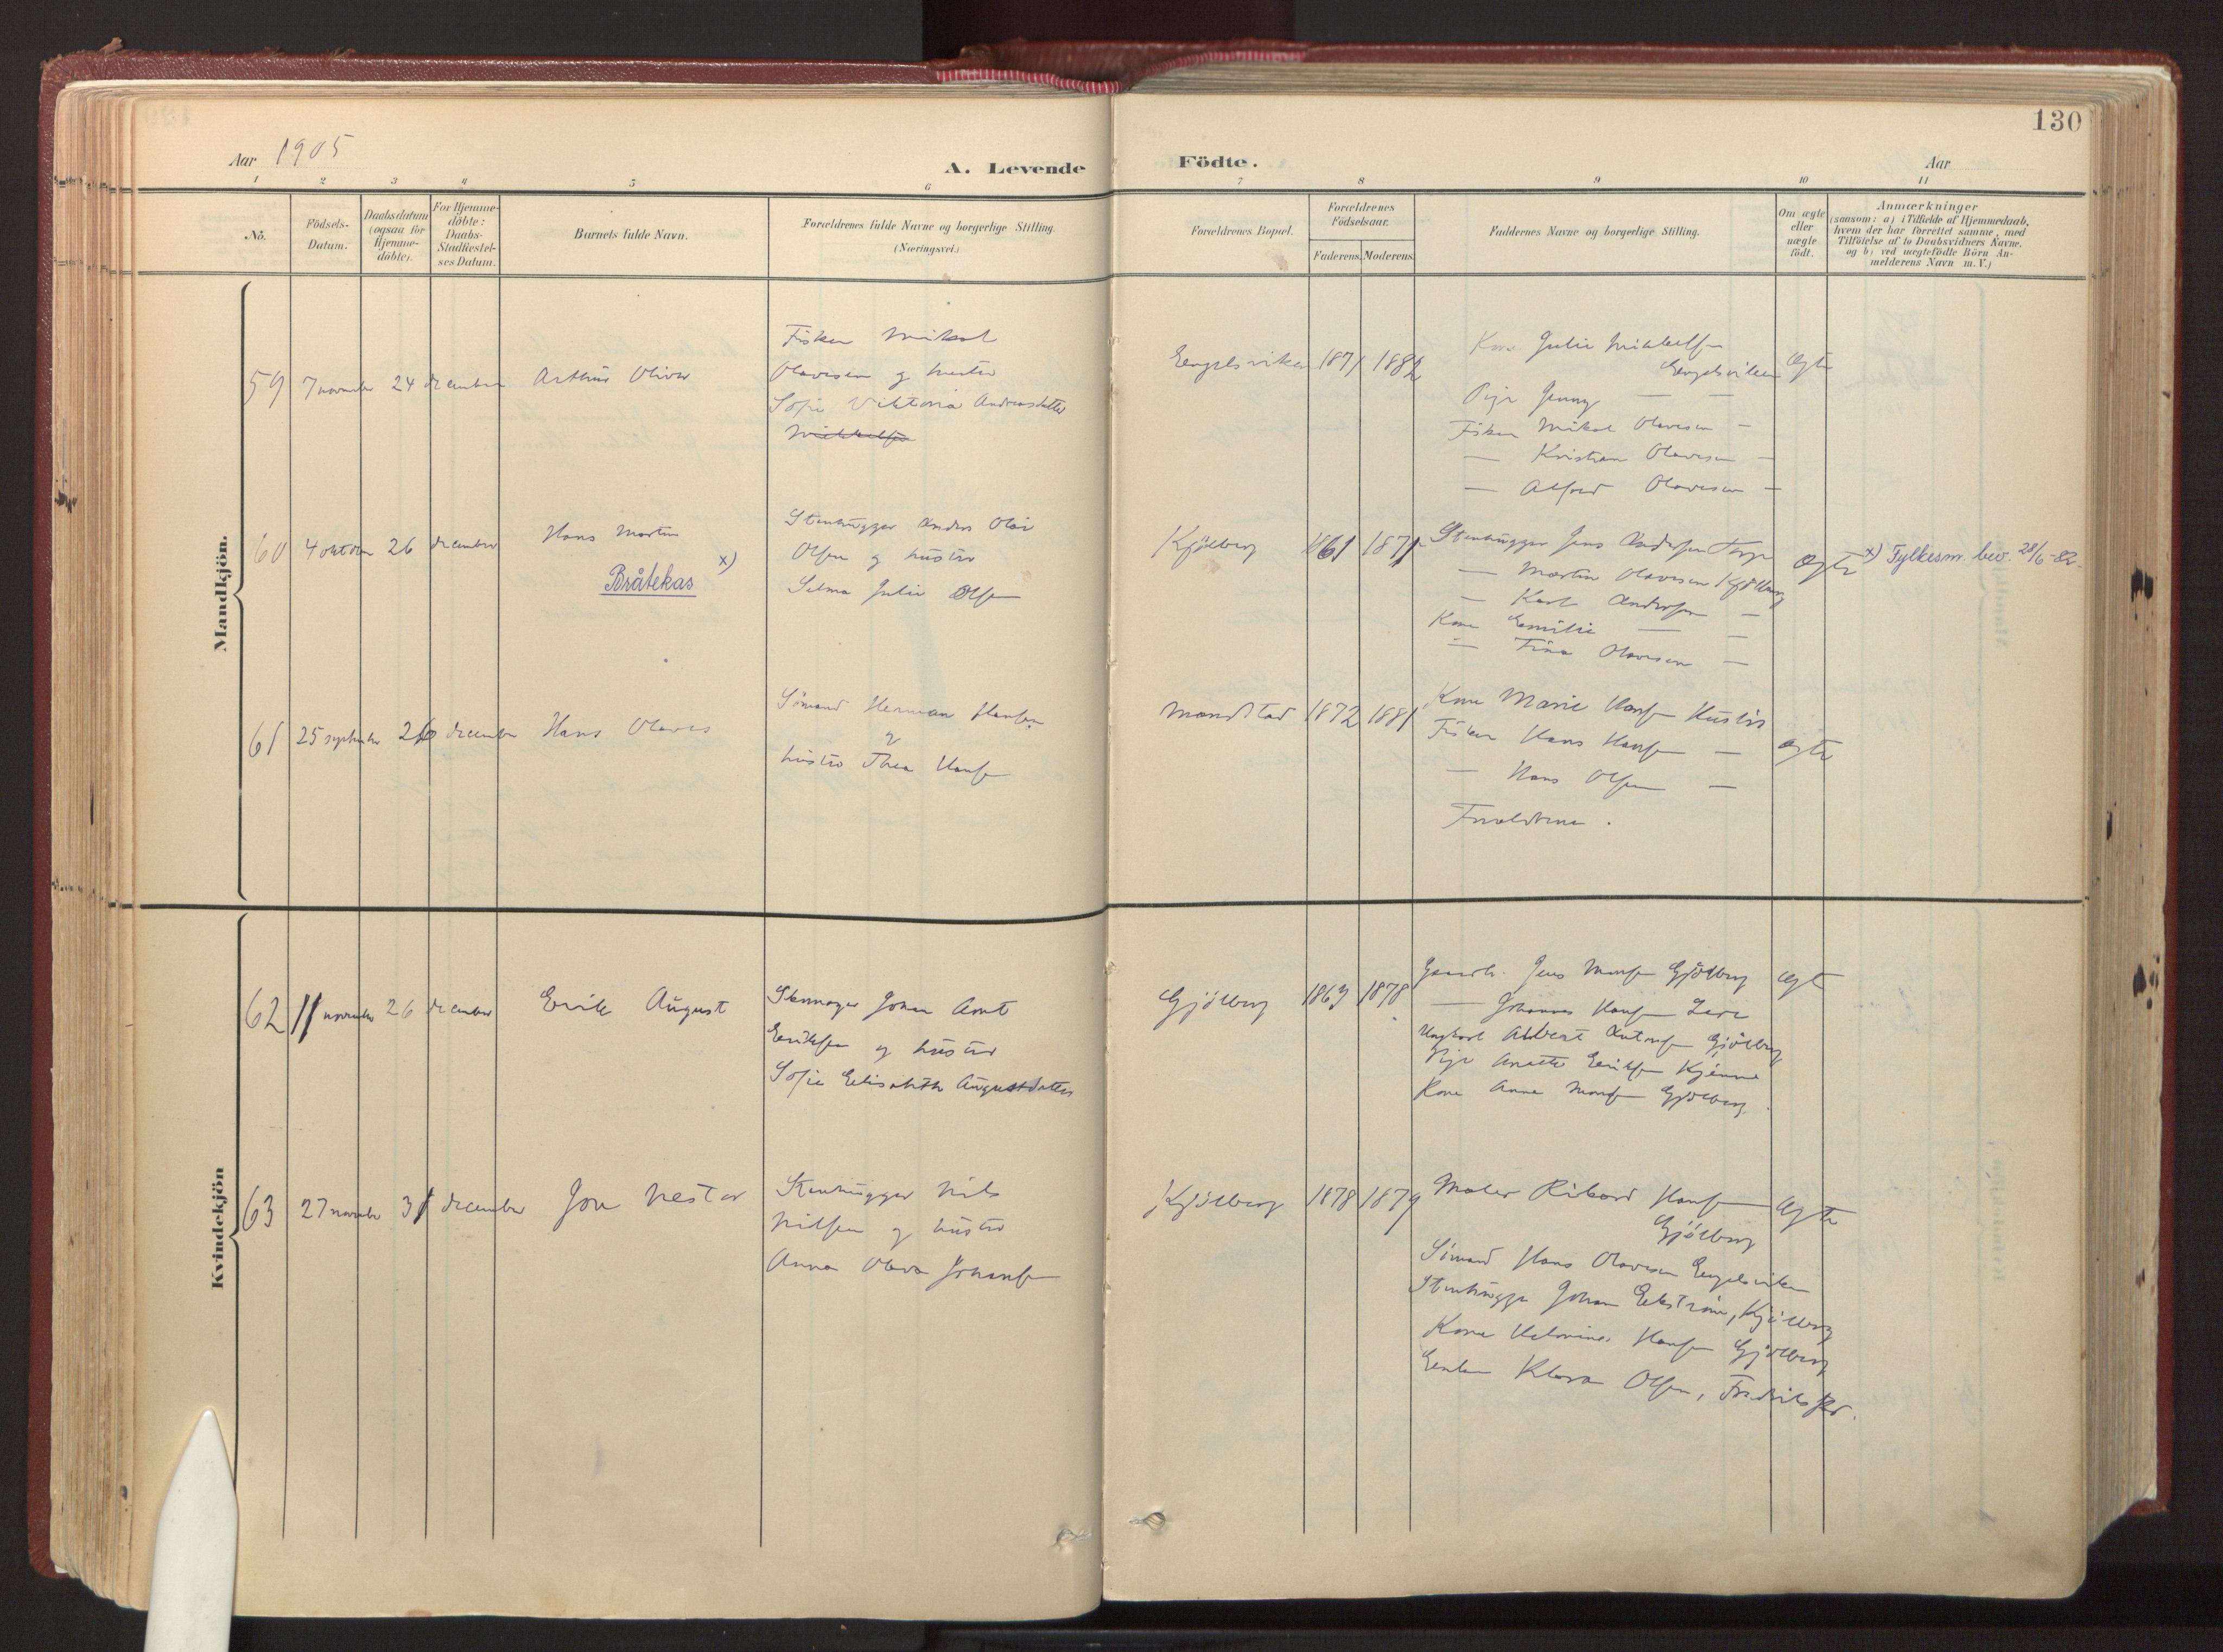 130
Aar 1905
A. Levende Födte.
Aar
1 2 3 4 5 6 7 8 9 10 11
No.
Födsels-
Datum.
Daabsdatum
(ogsaa for
Hjemme-
döbte).
For Hjemme-
döbte:
Daabs-
Stadfæstel-
ses Datum.
Barnets fulde Navn.
Forældrenes fulde Navne og borgerlige Stilling.
(Næringsvei.)
Forældrenes Bopæl.
Forældrenes
Födselsaar.
Faderens. Moderens.
Faddernes Navne og borgerlige Stilling.
Om ægte
eller
uægte
födt.
Anmærkninger
(saasom: a) i Tilfælde af Hjemmedaab,
hvem der har forrettet samme, med
Tilföielse af to Daabsvidners Navne.
og b) ved uægtefödte Börn An-
melderens Navn m. V.)
Mandkjön.
59 7 november 24 december Arthur Oliver
Fisker Mikal
Olavesen og hustru
Sofie Viktoria Andreasdatter
Mikkelsen
Engelsviken 1871 1882
Kone Julie Mikkelsen
Engelsviken
Pige Jenny — —
Fisker Mikal Olavesen —
— Kristian Olavesen —
— Alfred Olavesen —
Ægte
60 4 oktober 26 december Hans Martin
Bråtekas x)
Stenhugger Anders Olai
Olsen og hustru
Selma Julie Olsen
Kjölberg 1861 1871
Stenhugger Jens Andersen
— Martin Olavesen Kjölberg
— Karl Andersen —
Kone Emilie — —
— Fina Olavesen —
Ægte
x) Fylkesm. bev. 28/6-82.
61 25 september 26 december Hans Olaves
Sömand Herman Hansen
og
hustru Thea Hansen
Mandstad 1872 1881
Kone Marie Hansen
Fisker Hans Hansen —
— Hans Olsen —
Forældrene.
ægte
Kvindekjön
62 11 november 26 december Erik August
Johan Arnt
Eriksen og hustru
Sofie Elisabeth Augustdatter
Gjölberg 1863 1878
Gaardb. Jens Monsen Gjölberg
— Johannes Hansen Lere
Ungkarl Albert Antonsen Gjölberg
Pige Anette Eriksen Kjenne
Kone Anna Monsen Gjölberg.
ægte
63 27 november 31 december Jon Nestor
Stenhugger Nils
Nilsen og hustru
Anna Olava Johansen
Kjölberg 1878 1879
Maler Rikard Hansen
Gjölberg
Sömand Hans Olavesen Engelsviken
Stenhugger Johan Ekström, Kjölberg
Kone Halvine Hansen Gjölberg
Enke Klara Olsen, Fredrikstad.
Ægte